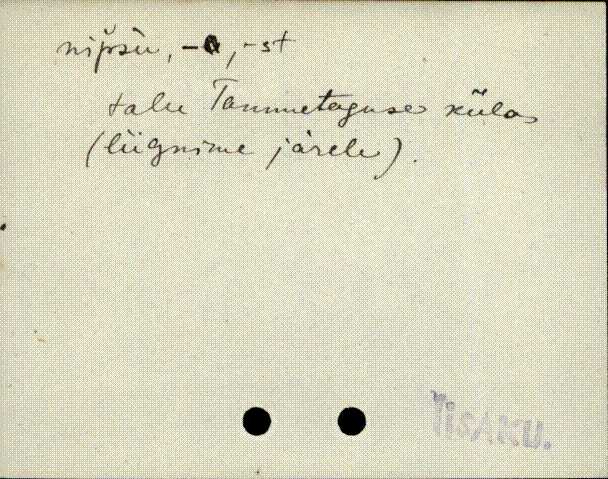 nipsu, -a, -st
talu Tammetaguse külas
(liignime järele).
IISAKU.